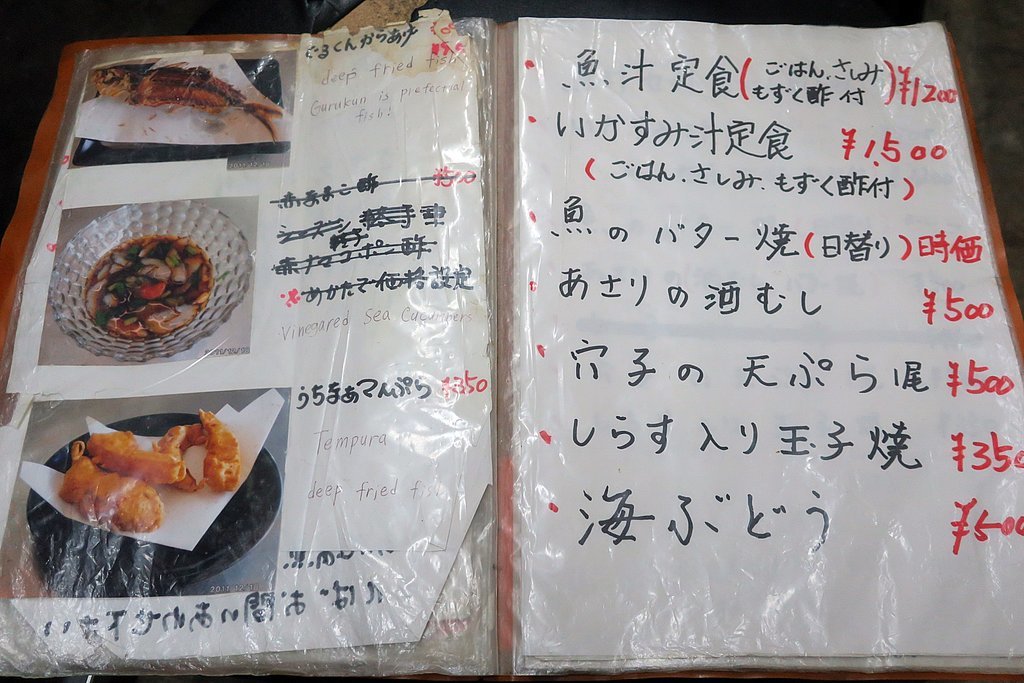 ぐるくんからあげ
deep fried fish
Gurukun is prefectural
fish!
2011.12.13
酢
¥500
酢
※ めかたで価格設定
Vinegared Sea Cucumbers
うちまぁてんぷら ¥350
Tempura
deep fried fish
2011.12.13
魚汁定食(ごはん、さしみ
もずく酢付)¥1200
いかすみ汁定食 ¥1,500
(ごはん、さしみ、もずく酢付)
魚のバター焼(日替り)時価
あさりの酒むし ¥500
穴子の天ぷら ¥500
しらす入り玉子焼 ¥350
海ぶどう ¥500